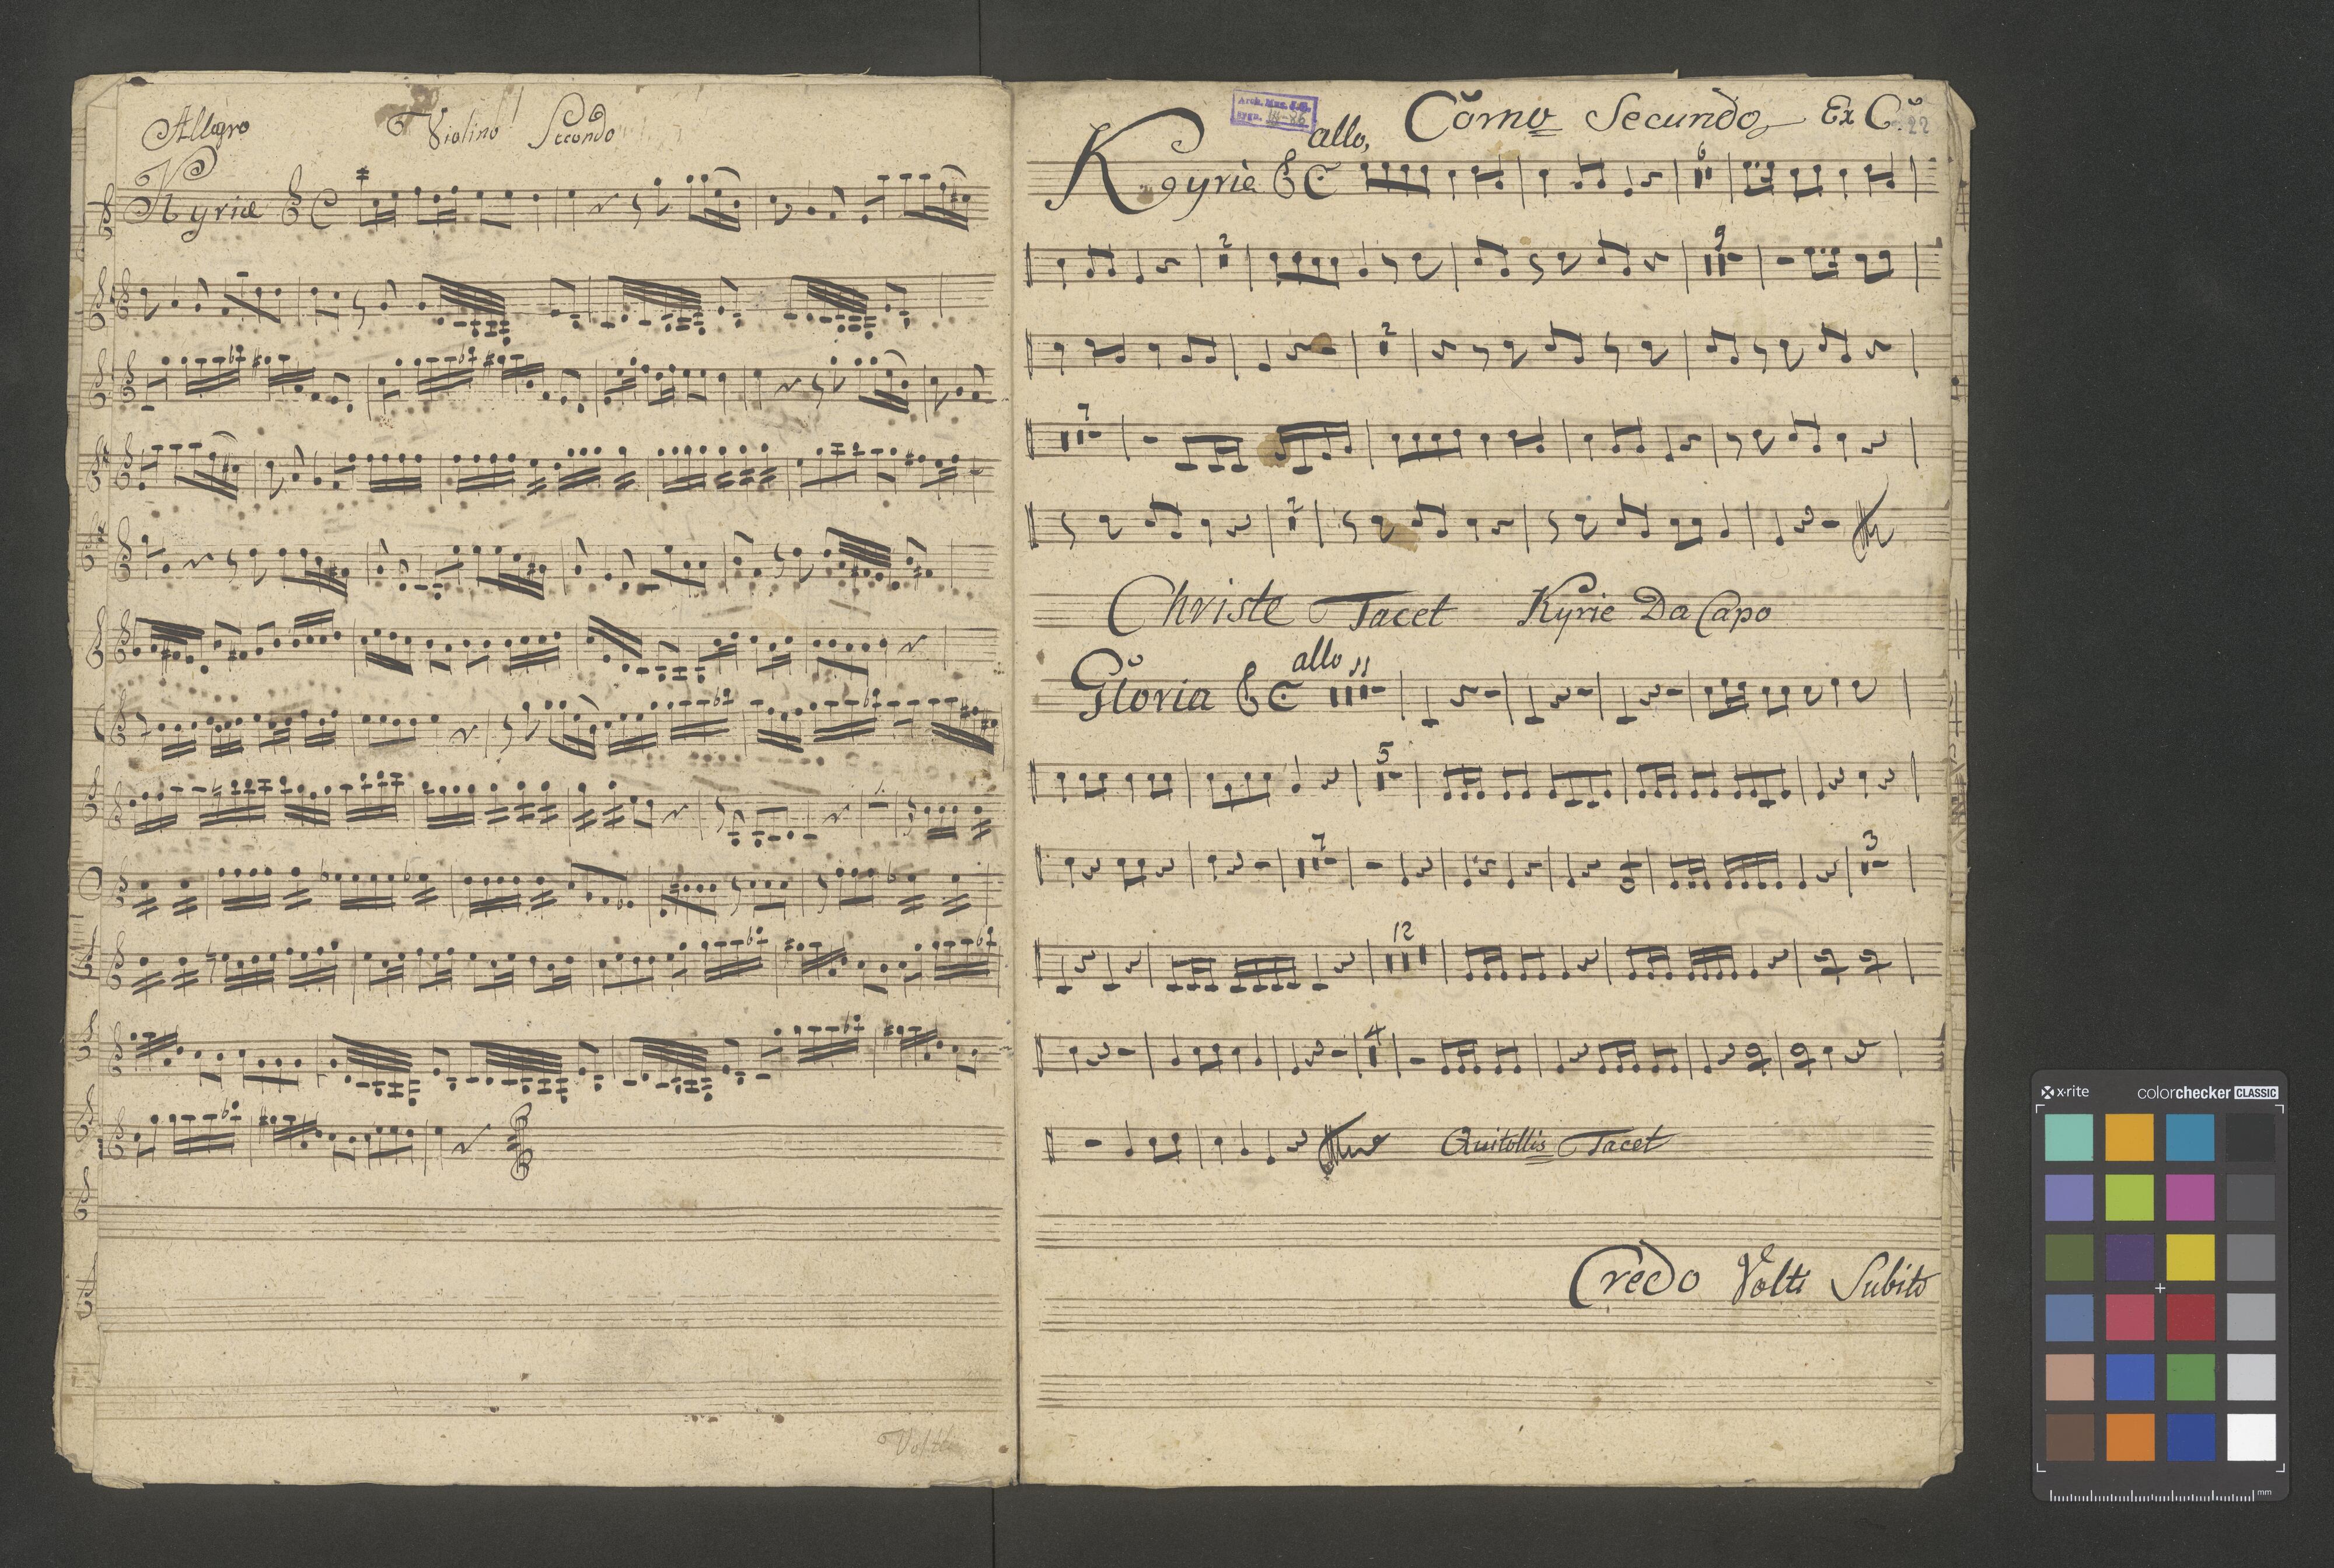 Allegro Violino Secondo
Kyriæ
Volti
Arch. Mus. J.G.
sygn.
allo, Corno Secundo Ex C. 22
Kyrie
6
2 9
2
7
2
Christe Tacet Kyrie Da Capo
allo 11
Gloria
5
7 3
12
4
Quitollis Tacet
Credo Volti Subito
x-rite colorchecker CLASSIC
mm